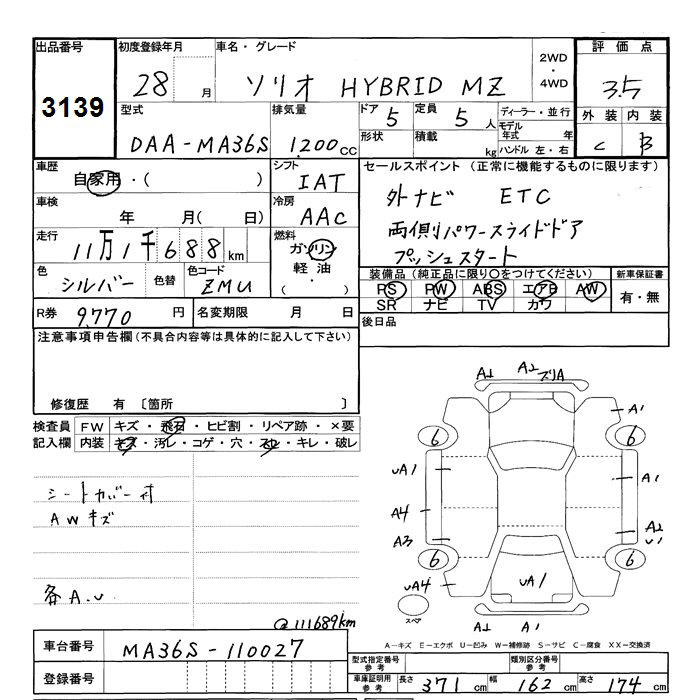 出品番号 初度登録年月 車名・グレード 2WD・4WD 評価点
3139 28 月 ソリオ HYBRID MZ 3.5
型式 排気量 ドア 5 定員 5 人 ディーラー・並行 外装 内装
DAA-MA36S 1,200 cc 形状 積載 kg モデル年式 年 ハンドル 左・右 C B
車歴 自家用・( ) シフト IAT セールスポイント (正常に機能するものに限ります)
車検 年 月( 日) 冷房 AAC 外ナビ ETC
走行 11万1千688 km 燃料 ガソリン 軽油・( ) 両側パワースライドドア
プッシュスタート
色 シルバー 色替 色コード ZMU 装備品 (純正品に限り○をつけてください) 新車保証書
PS PW ABS エアB AW 有・無
SR ナビ TV カワ
R券 9,770 円 名変期限 月 日 後日品
注意事項申告欄 (不具合内容等は具体的に記入して下さい)
修復歴 有 〔箇所 〕
検査員 FW キズ・飛石・ヒビ割・リペア跡・×要
記入欄 内装 キズ・汚レ・コゲ・穴・スレ・キレ・破レ
シートカバー付
AWキズ
各A.U
@111689km
A1 A2 スリA
6 6 A1
UA1 A1
A4
A3 A2 U1
6 6
UA4 UA1
スペア
A1 A1
A-キズ E-エクボ U-凹み W-補修跡 S-サビ C-腐食 XX-交換済
車台番号 MA36S-110027
登録番号
型式指定番号 参考 類別区分番号 参考
車庫証明用 参考 長さ 371 cm 幅 162 cm 高さ 174 cm